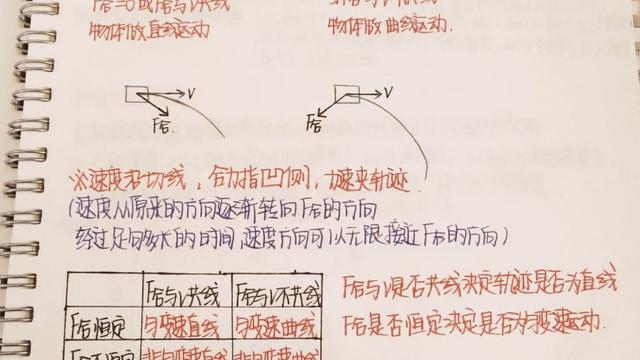 F合=0或F合与V共线
F合与V不共线
物体做直线运动
物体做曲线运动
V
F合
V
F合
※速度沿切线,合力指凹侧,力速夹轨迹.
(速度从原来的方向逐渐转向F合的方向
经过足够多长的时间,速度方向可以无限接近F合的方向)
F合与V共线 F合与V不共线
F合恒定 匀变速直线 匀变速曲线
F合不恒定 非匀变速直线 非匀变速曲线
F合与V是否共线决定轨迹是否为直线
F合是否恒定决定是否为匀变速运动.